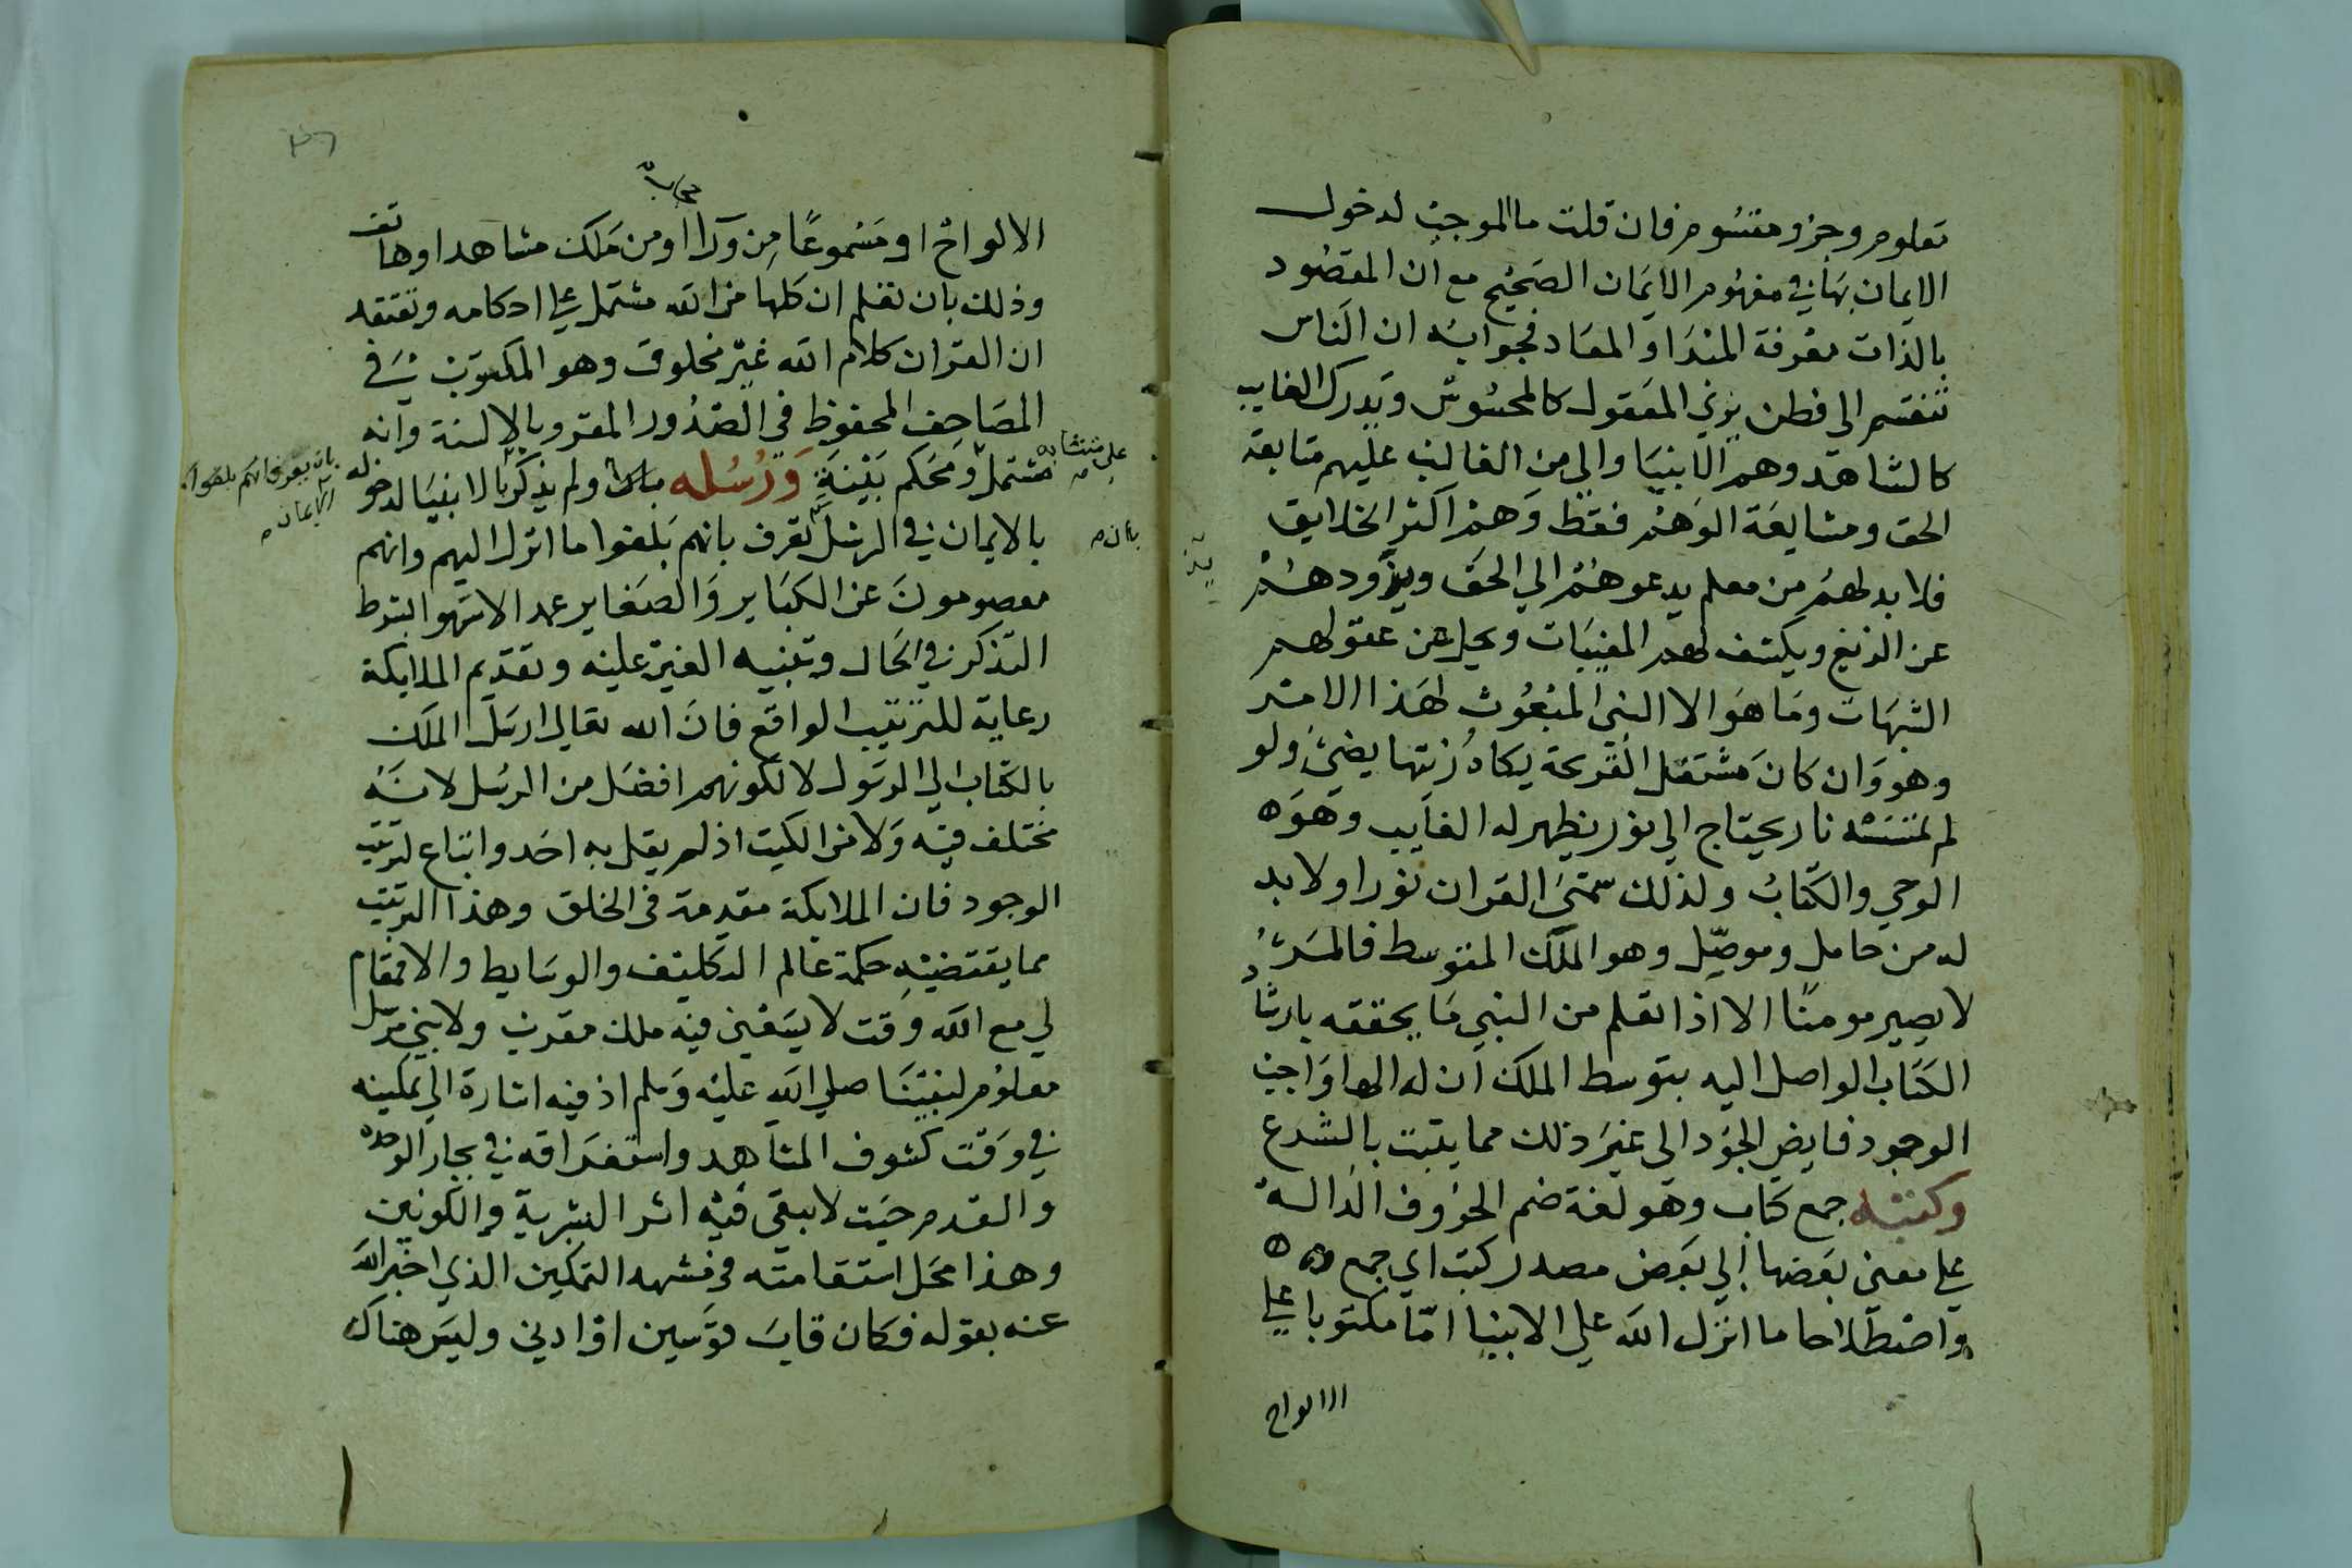 معلوم وجزو مقسوم فان قلت ما الموجب لدخول
الايمان بها في مفهوم الايمان الصحيح مع ان المقصود
بالذات معرفة المبدا والمعاد فجوابه ان الناس
تنقسم الى فطن يري المعقول كالمحسوس ويدرك الغايب
كالشاهد وهم الانبيا والي من الغالب عليهم متابعة
الحق ومشايعة الوهم فقط وهم اكثر الخلايق
فلا بد لهم من معلم يدعوهم الي الحق ويذودهم
عن الزيغ ويكشف لهم المغيبات ويحل عن عقولهم
الشبهات وما هو الا النبي المبعوث لهذا الامر
وهو وان كان مشتعل القريحة يكاد زيتها يضيئ ولو
لم تمسسه نار يحتاج الي نور يظهر له الغايب وهو
الوحي والكتاب ولذلك سمي القران نورا ولا بد
له من حامل وموصل وهو الملك المتوسط فالمر
لا يصير مومنا الا اذا تعلم من النبي ما يحققه بارشاد
الكتاب الواصل اليه بتوسط الملك ان له الها واجب
الوجود فايض الجود الي غير ذلك مما يثبت بالشرع
وكتبه جمع كتاب وهو لغة ضم الحروف الدالة
علي معني بعضها الي بعض مصدر كتب اي جمع
واصطلاحا ما انزل الله علي الانبيا اما مكتوبا علي
الالواح
الالواح او مسموعا من ورا او من ملك مشاهد او هاتف
وذلك بان تعلم ان كلها من الله مشتمل علي احكامه وتعتقد
ان القران كلام الله غير مخلوق وهو المكتوب في
المصاحف المحفوظ في الصدور المقرو بالالسنة وانه
مشتمل ومحكم بينة ورسله ولم يذكر بالانبيا لدخوله
علي متشابه
بالايمان في الرسل تعرف بانهم بلغوا ما انزل اليهم وانهم
بان يعرف انهم بلغوا
الايمان
معصومون عن الكباير والصغاير عمدا لا سهوا بشرط
التذكر في الحال وتنبيه الغير عليه وتقديم الملايكة
رعاية للترتيب الواقع فان الله تعالي ارسل الملك
بالكتاب الي الرسول لا لكونهم افضل من الرسل لانه
مختلف فيه ولا من الكتب اذ لم يقل به احد واتباع لترتيب
الوجود فان الملايكة مقدمة في الخلق وهذا الترتيب
مما يقتضيه حكمة عالم التكليف والوسايط والا فمقام
لي مع الله وقت لا يسعني فيه ملك مقرب ولا نبي مرسل
معلوم لنبينا صلي الله عليه وسلم اذ فيه اشارة الي تمكينه
في وقت كشوف المشاهد واستغراقه في بحار الوحدة
والقدم حيث لا يبقي فيه اثر البشرية والكونين
وهذا محل استقامته في مشهد التمكين الذي اخبر الله
عنه بقوله فكان قاب قوسين او ادني وليس هناك